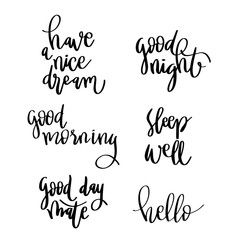 have
a nice
dream
good
night
good
morning
sleep
well
good day
mate
hello